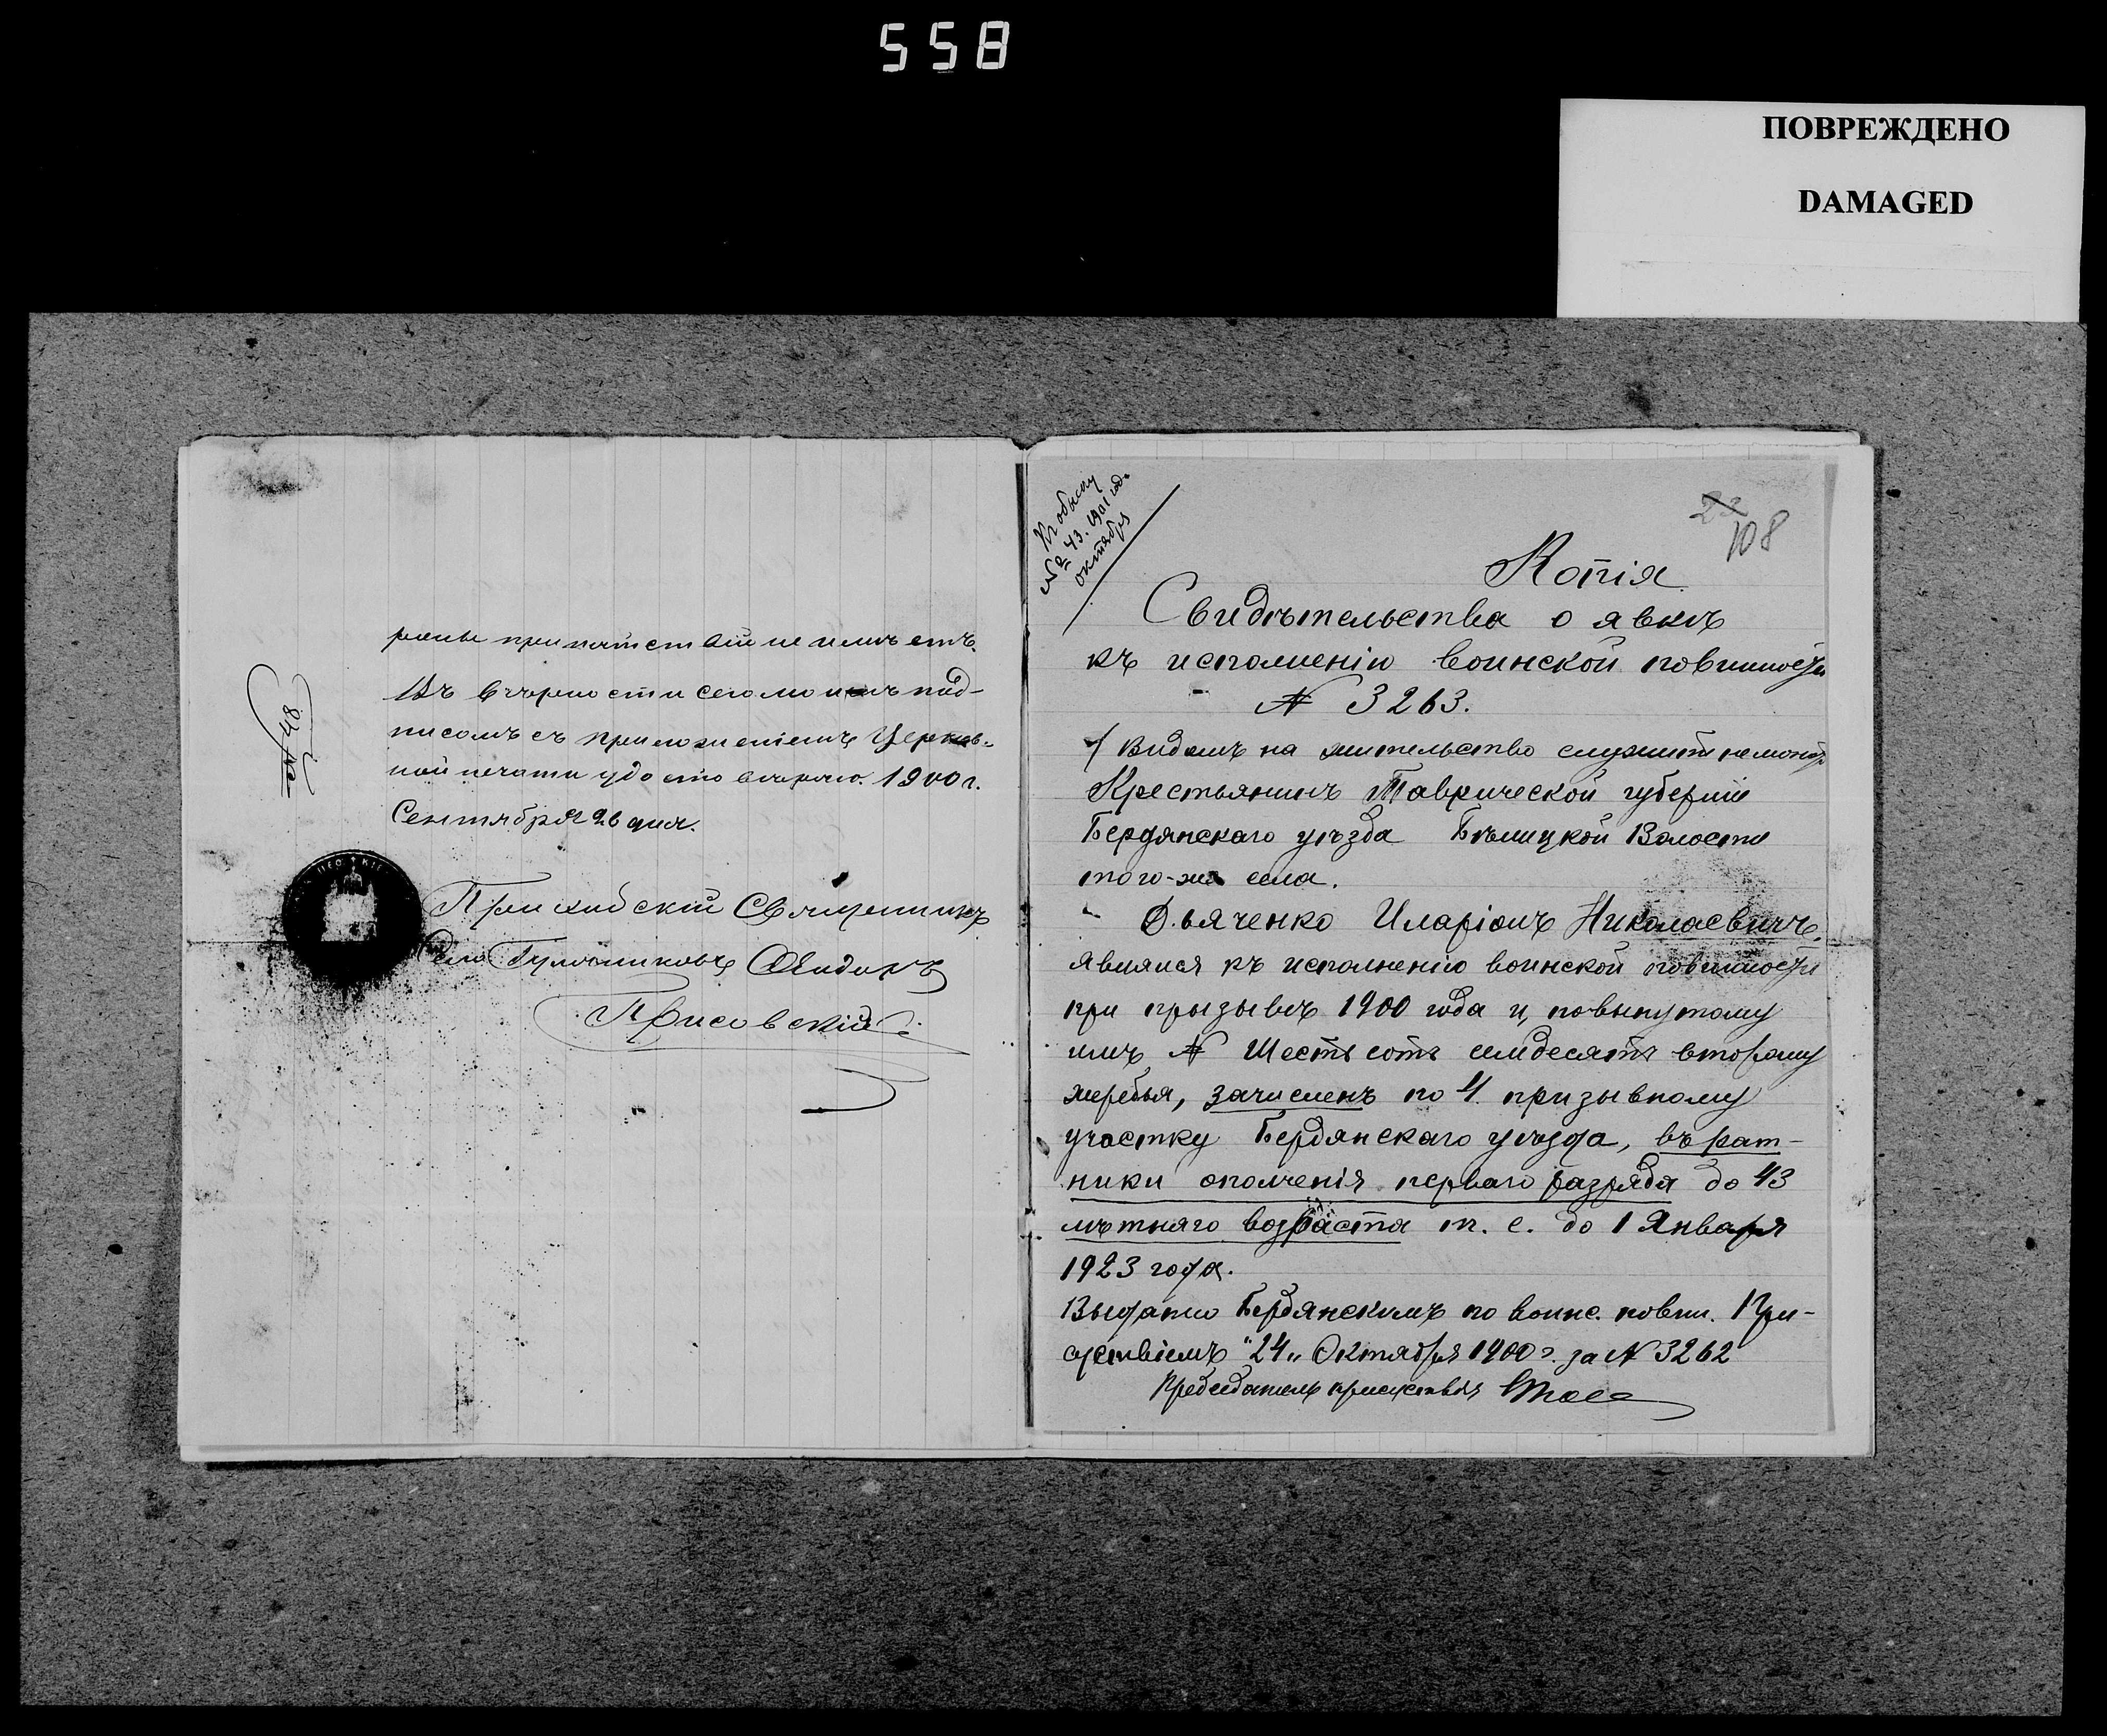 558
ПОВРЕЖДЕНО
DAMAGED
№ 48.
роны препятствій не имѣетъ.
Въ вѣрности сего моимъ под-
писомъ съ приложеніемъ Церков-
ной печати удостовѣряю. 1900 г.
Сентября 26 дня.
Приходскій Священникъ
Села
Присовскій
Къ обыску
№ 43. 1901 года
октября
22
108
Копія
Свидѣтельства о явкѣ
къ исполненію воинской повинности
№ 3263.
/ Видомъ на жительство служить не можетъ
Крестьянинъ Таврической губерніи
Бердянскаго уѣзда Бѣлицкой Волости
того-же села.
Дьяченко Иларіонъ Николаевичъ.
явился къ исполненію воинской повинности
при призывѣ 1900 года и, по вынутому
имъ № Шестьсотъ семдесятъ второму
жеребья, зачисленъ по 4 призывному
участку Бердянскаго уѣзда, въ рат-
ники ополченія перваго разряда до 43
лѣтняго возраста т. е. до 1 Января
1923 года.
Выдано Бердянскимъ по воинс. повин. При-
сутствіемъ "24" Октября 1900 г. за № 3262
Председатель присутствія